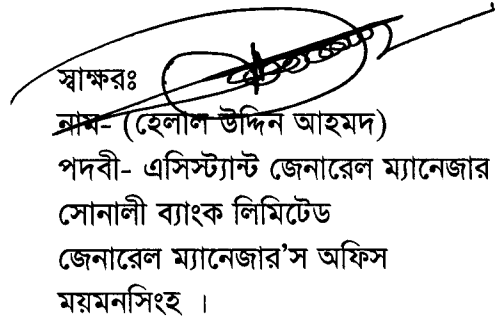 স্বাক্ষরঃ
নাম- (হেলাল উদ্দিন আহমদ)
পদবী- এসিস্ট্যান্ট জেনারেল ম্যানেজার
সোনালী ব্যাংক লিমিটেড
জেনারেল ম্যানেজার’স অফিস
ময়মনসিংহ ।